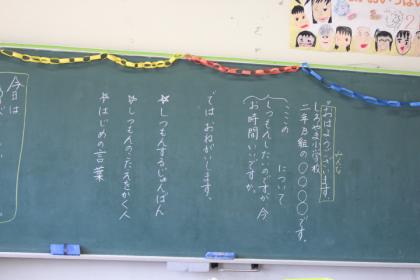 みんな
おはようございます。
しろやま小学校
二年B組の〇〇〇〇です。
ここの　　について
しつもんしたいのですが今
お時間いいですか。
では おねがいします。
☆しつもんするじゅんばん
☆しつもんのこたえをかく人
☆はじめの言葉
今日は